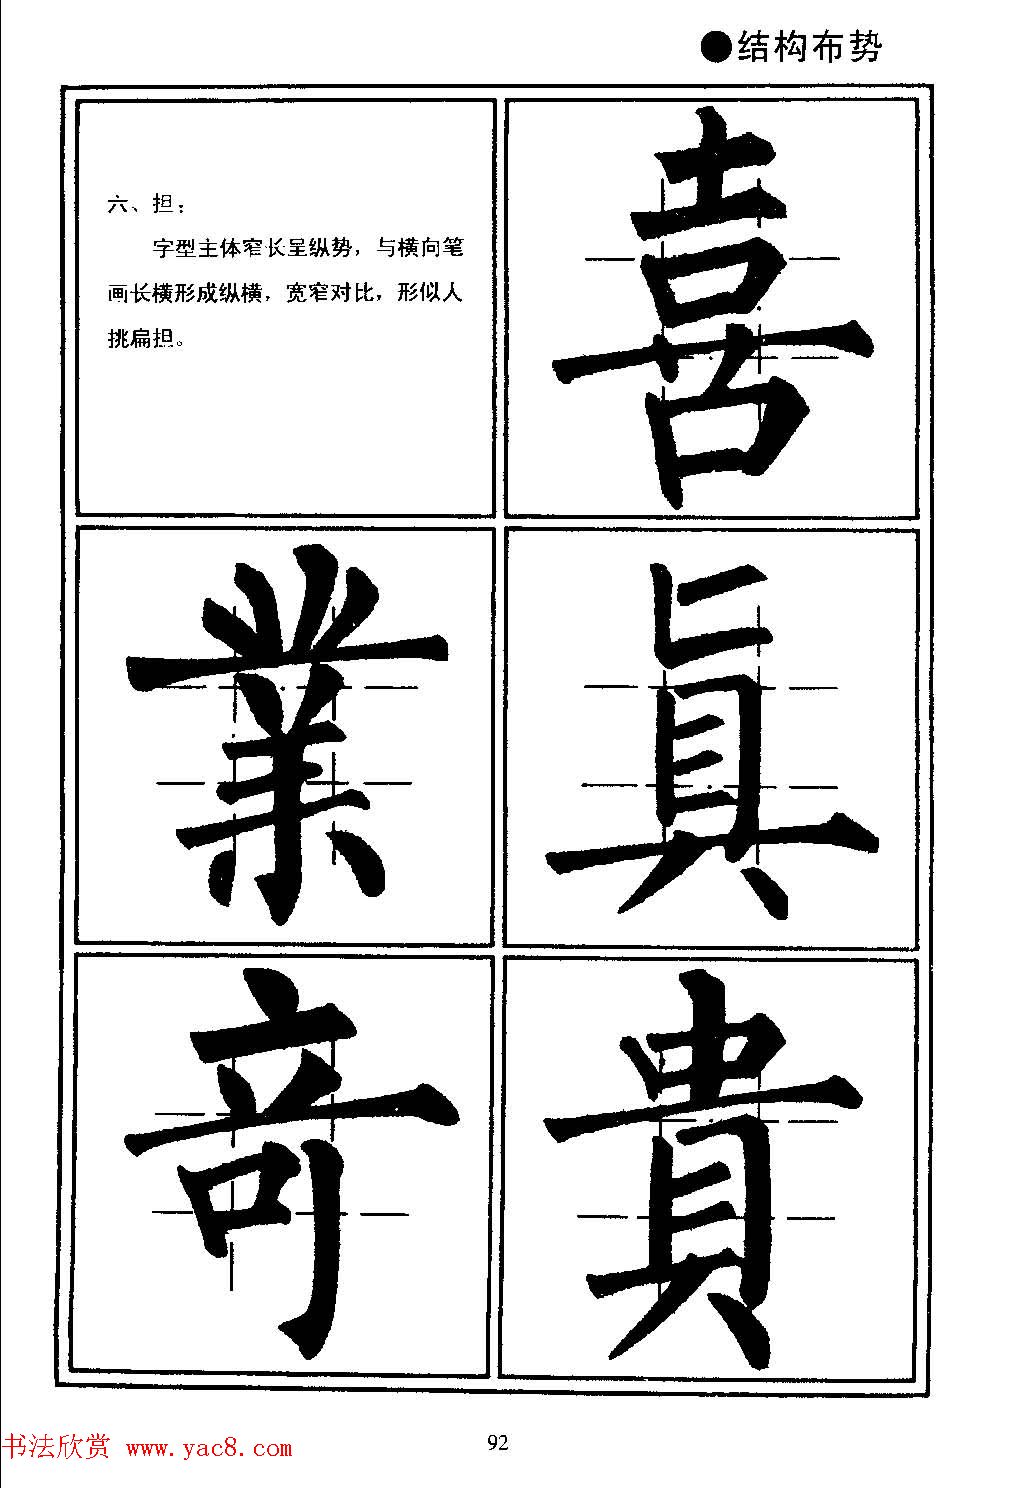 ●结构布势
六、担：
字型主体窄长呈纵势，与横向笔
画长横形成纵横，宽窄对比，形似人
挑扁担。
喜
業 眞
竒 貴
书法欣赏 www.yac8.com
92